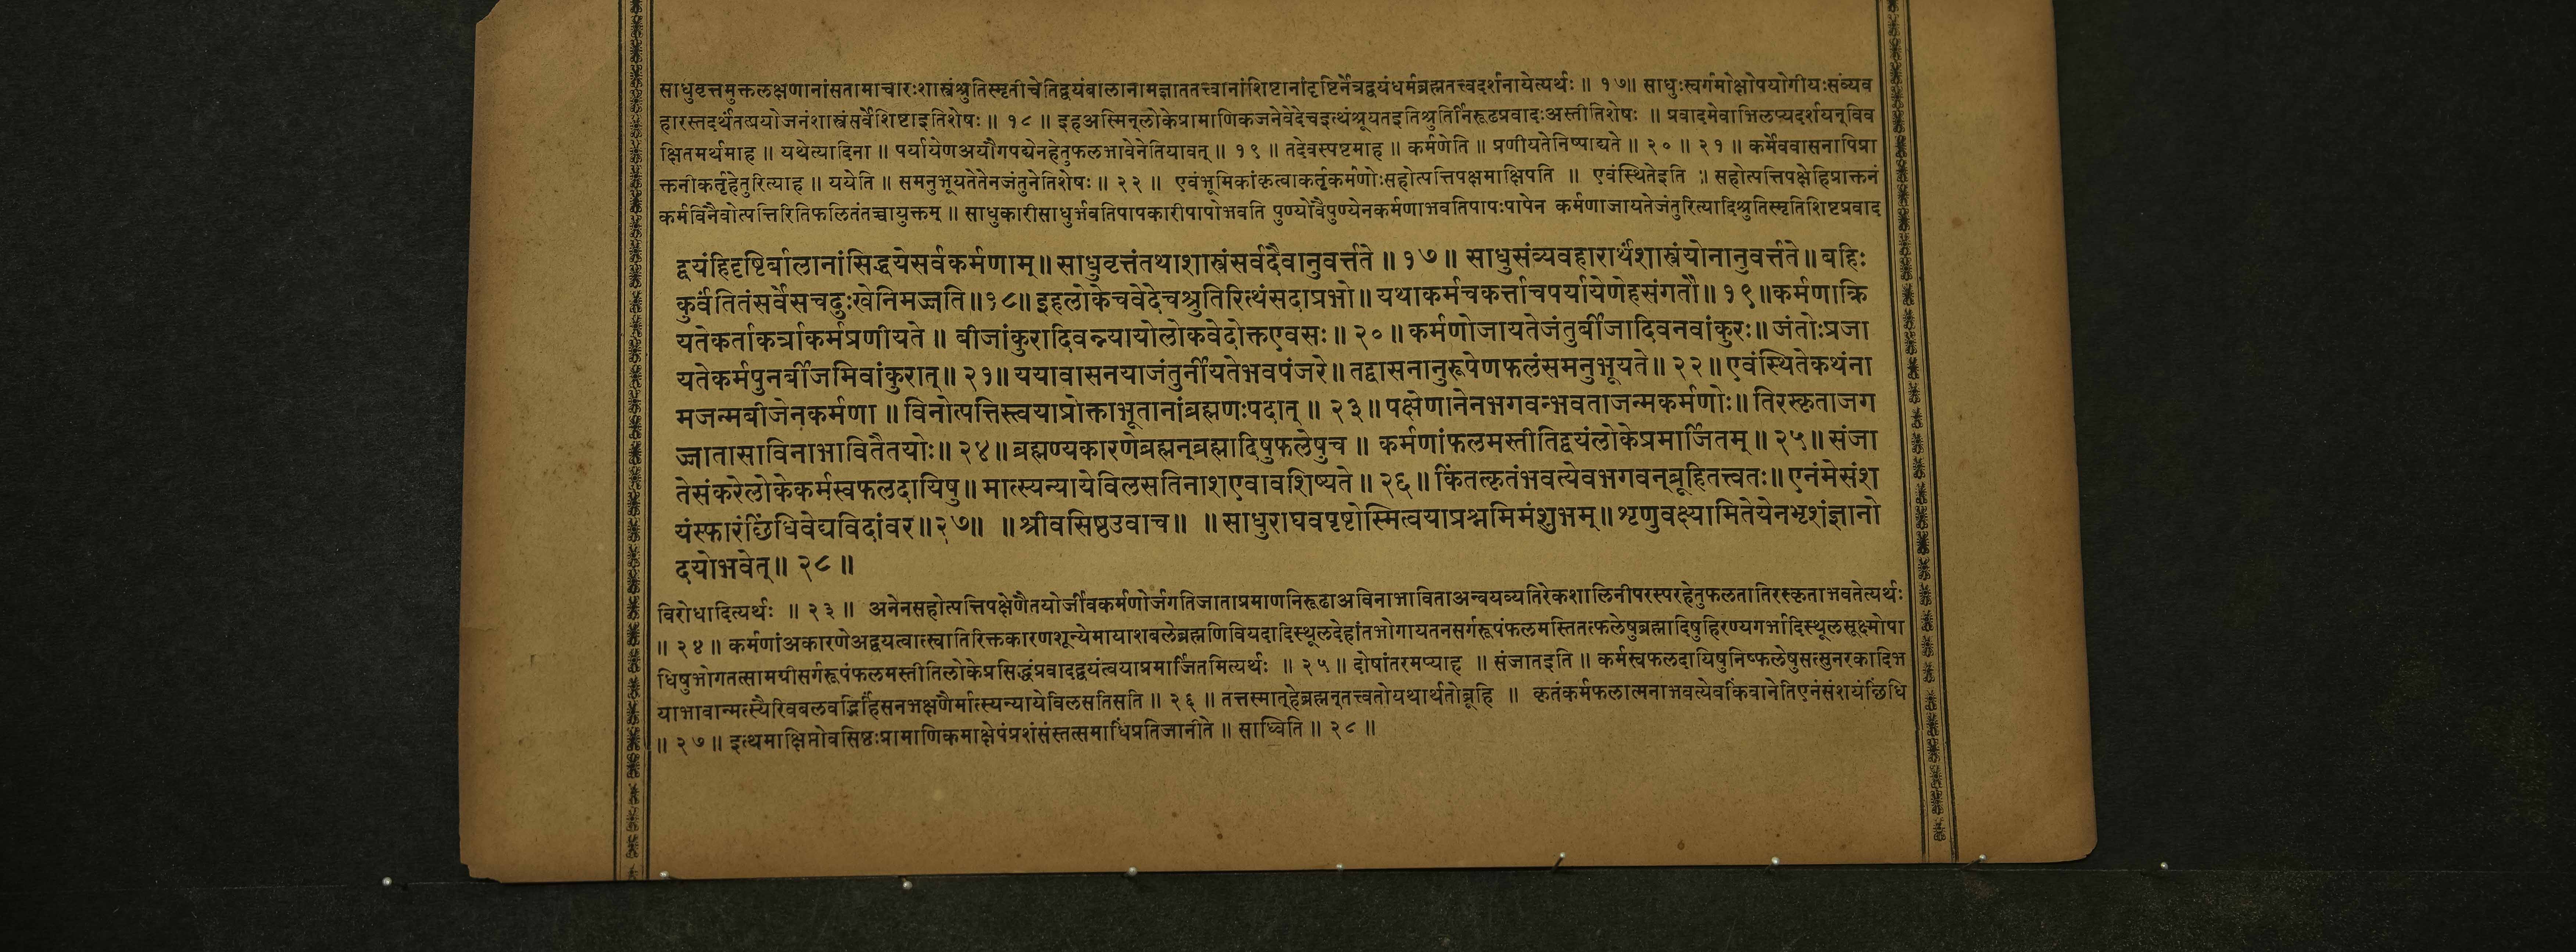 साधुवृत्तमुक्तलक्षणानांसतामाचारःशास्त्रंश्रुतिस्मृतीचेतिद्वयंबालानामज्ञाततत्त्वानांशिष्टानांदृष्टिर्नेत्रद्वयंधर्मब्रह्मतत्त्वदर्शनायेत्यर्थः ॥ १७॥ साधुःस्वर्गमोक्षोपयोगीयःसंव्यव
हारस्तदर्थंतत्प्रयोजनंशास्त्रंसर्वेशिष्टाइतिशेषः ॥ १८ ॥ इहअस्मिन्लोकेप्रामाणिकजनेवेदेचइत्थंश्रूयतइतिश्रुतिर्निरूढप्रवादःअस्तीतिशेषः ॥ प्रवादमेवाभिलप्यदर्शयन्विव
क्षितमर्थमाह ॥ यथेत्यादिना ॥ पर्यायेणअयौगपद्येनहेतुफलभावेनेतियावत् ॥ १९ ॥ तदेवस्पष्टमाह ॥ कर्मणेति ॥ प्रणीयतेनिष्पाद्यते ॥ २० ॥ २१ ॥ कर्मैववासनापिप्रा
क्तनीकर्तृहेतुरित्याह ॥ ययेति ॥ समनुभूयतेतेनजंतुनेतिशेषः ॥ २२ ॥ एवंभूमिकांकृत्वाकर्तृकर्मणोःसहोत्पत्तिपक्षमाक्षिपति ॥ एवंस्थितेइति ॥ सहोत्पत्तिपक्षेहिप्राक्तनं
कर्मविनैवोत्पत्तिरितिफलितंतच्चायुक्तम् ॥ साधुकारीसाधुर्भवतिपापकारीपापोभवति पुण्योवैपुण्येनकर्मणाभवतिपापःपापेन कर्मणाजायतेजंतुरित्यादिश्रुतिस्मृतिशिष्टप्रवाद
द्वयंहिदृष्टिर्बालानांसिद्धयेसर्वकर्मणाम्॥ साधुवृत्तंतथाशास्त्रंसर्वदैवानुवर्त्तते ॥ १७ ॥ साधुसंव्यवहारार्थंशास्त्रंयोनानुवर्त्तते॥ बहिः
कुर्वंतितंसर्वेसचदुःखेनिमज्जति॥१८॥ इहलोकेचवेदेचश्रुतिरित्थंसदाप्रभो॥ यथाकर्मचकर्त्ताचपर्यायेणेहसंगतौ॥ १९॥कर्मणाक्रि
यतेकर्ताकर्त्राकर्मप्रणीयते ॥ बीजांकुरादिवन्न्यायोलोकवेदोक्तएवसः॥ २० ॥ कर्मणोजायतेजंतुर्बीजादिवनवांकुरः॥ जंतोःप्रजा
यतेकर्मपुनर्बीजमिवांकुरात्॥ २१॥ ययावासनयाजंतुर्नीयतेभवपंजरे॥ तद्वासनानुरूपेणफलंसमनुभूयते॥ २२॥ एवंस्थितेकथंना
मजन्मबीजेनकर्मणा ॥ विनोत्पत्तिस्त्वयाप्रोक्ताभूतानांब्रह्मणःपदात् ॥ २३॥ पक्षेणानेनभगवन्भवताजन्मकर्मणोः॥ तिरस्कृताजग
ज्जातासाविनाभावितैतयोः॥ २४॥ ब्रह्मण्यकारणेब्रह्मन्ब्रह्मादिषुफलेषुच ॥ कर्मणांफलमस्तीतिद्वयंलोकेप्रमार्जितम्॥ २५॥ संजा
तेसंकरेलोकेकर्मस्वफलदायिषु॥ मात्स्यन्यायेविलसतिनाशएवावशिष्यते॥ २६॥ किंतत्कृतंभवत्येवभगवन्ब्रूहितत्त्वतः॥ एनंमेसंश
यंस्फारंछिंधिवेद्यविदांवर॥२७॥ ॥ श्रीवसिष्ठउवाच॥ ॥ साधुराघवपृष्टोस्मित्वयाप्रश्नमिमंशुभम्॥ शृणुवक्ष्यामितेयेनभृशंज्ञानो
दयोभवेत्॥ २८ ॥
विरोधादित्यर्थः ॥ २३ ॥ अनेनसहोत्पत्तिपक्षेणैतयोर्जीवकर्मणोर्जगतिजाताप्रमाणनिरूढाअविनाभाविताअन्वयव्यतिरेकशालिनीपरस्परहेतुफलतातिरस्कृताभवतेत्यर्थः
॥ २४ ॥ कर्मणांअकारणेअद्वयत्वात्स्वातिरिक्तकारणशून्येमायाशबलेब्रह्मणिवियदादिस्थूलदेहांतभोगायतनसर्गरूपंफलमस्तितत्फलेषुब्रह्मादिषुहिरण्यगर्भादिस्थूलसूक्ष्मोपा
धिषुभोगतत्सामग्रीसर्गरूपंफलमस्तीतिलोकेप्रसिद्धंप्रवादद्वयंत्वयाप्रमार्जितमित्यर्थः ॥ २५ ॥ दोषांतरमप्याह ॥ संजातइति ॥ कर्मस्वफलदायिषुनिष्फलेषुसत्सुनरकादिभ
याभावान्मत्स्यैरिवबलवद्भिर्हिंसनभक्षणैर्मात्स्यन्यायेविलसतिसति ॥ २६ ॥ तत्तस्मात्हेब्रह्मन्तत्त्वतोयथार्थतोब्रूहि ॥ कृतंकर्मफलात्मनाभवत्येवकिंवानेतिएनंसंशयंछिंधि
॥ २७ ॥ इत्थमाक्षिप्तोवसिष्ठःप्रामाणिकमाक्षेपंप्रशंसंस्तत्समाधिंप्रतिजानीते ॥ साध्विति ॥ २८ ॥